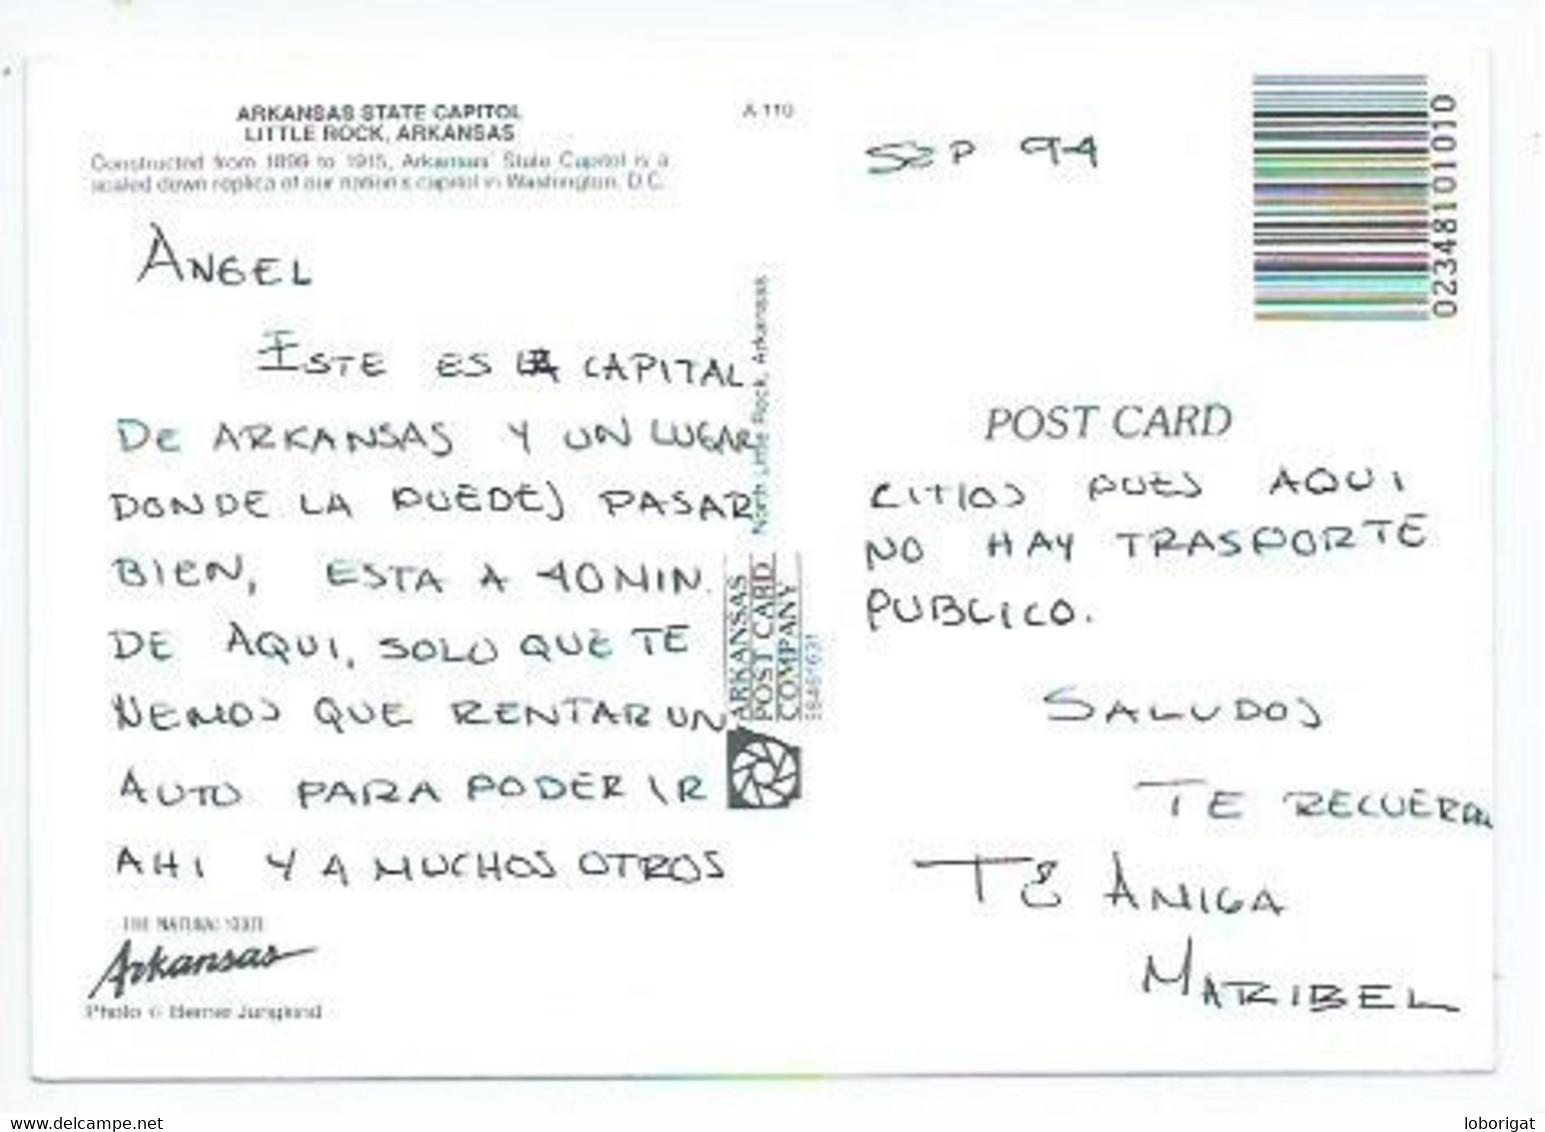 ARKANSAS STATE CAPITOL
LITTLE ROCK, ARKANSAS
Constructed from 1899 to 1915, Arkansas' State Capitol is a
scaled down replica of our nation's capitol in Washington, D.C.
A 110
ANGEL
ESTE ES LA CAPITAL
DE ARKANSAS Y UN LUGAR
DONDE LA PUEDES PASAR
BIEN, ESTA A 40 MIN.
DE AQUI, SOLO QUE TE
NEMOS QUE RENTAR UN
AUTO PARA PODER IR
AHI Y A MUCHOS OTROS
THE NATURAL STATE
Arkansas
Photo © Bernie Jungkind
North Little Rock, Arkansas
ARKANSAS
POST CARD
COMPANY
SEP 94
02348101010
POST CARD
CITIOS PUES AQUI
NO HAY TRASPORTE
PUBLICO.
SALUDOS
TE RECUERDA
TU AMIGA
MARIBEL
loborigat